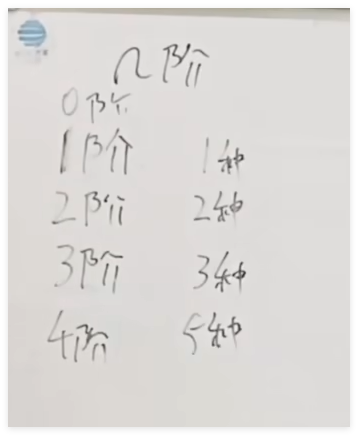 n阶
0阶
1阶 1种
2阶 2种
3阶 3种
4阶 5种